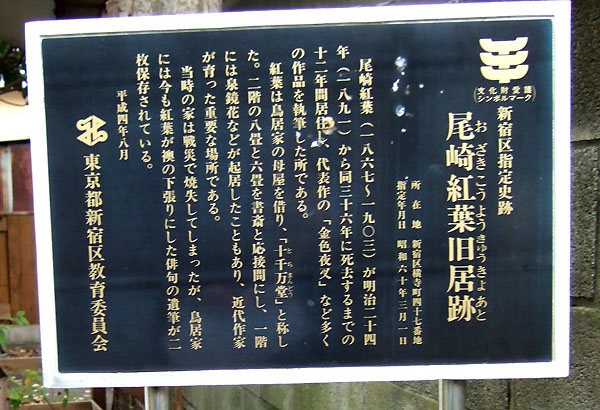 文化財愛護
シンボルマーク
新宿区指定史跡
おざきこうようきゅうきょあと
尾崎紅葉旧居跡
所在地 新宿区横寺町四十七番地
指定年月日 昭和六十年三月一日
尾崎紅葉（一八六七～一九〇三）が明治二十四
年（一八九一）から同三十六年に死去するまでの
十二年間居住し、代表作の「金色夜叉」など多く
の作品を執筆した所である。
紅葉は鳥居家の母屋を借り、「十千万堂」と称し
とちまんどう
た。二階の八畳と六畳を書斎と応接間にし、一階
には泉鏡花などが起居したこともあり、近代作家
が育った重要な場所である。
当時の家は戦災で焼失してしまったが、鳥居家
には今も紅葉が襖の下張りにした俳句の遺筆が二
枚保存されている。
平成四年八月
東京都新宿区教育委員会